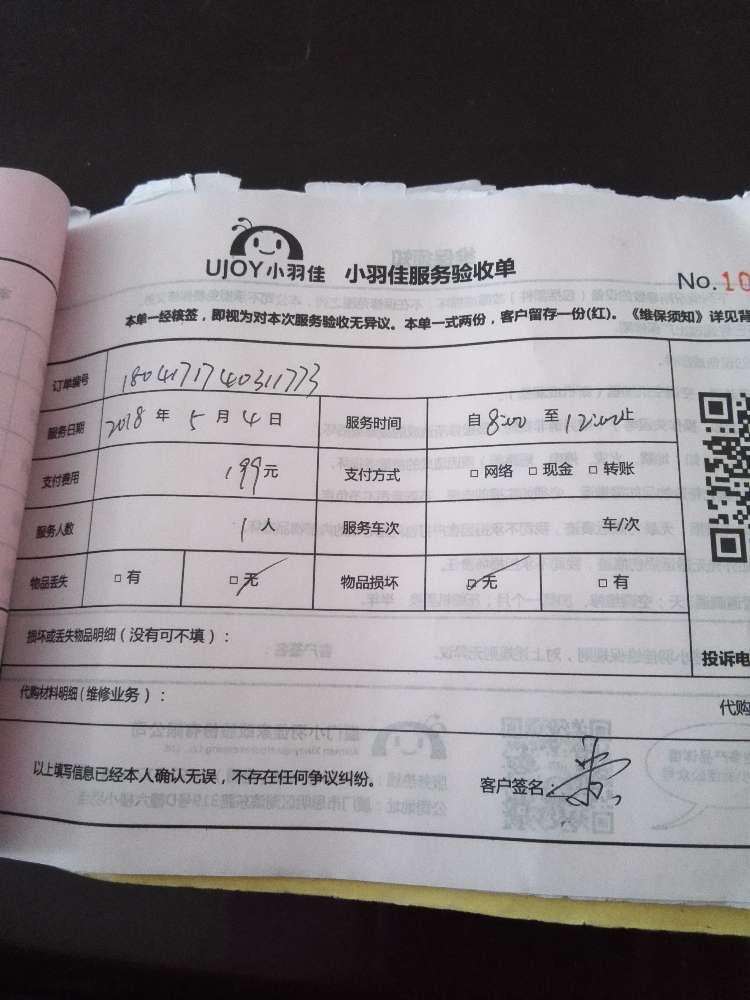 UJOY小羽佳 小羽佳服务验收单
No.10
本单一经核签,即视为对本次服务验收无异议。本单一式两份,客户留存一份(红)。《维保须知》详见背
订单编号 1804171740311773
服务日期 2018 年 5 月 4 日 服务时间 自 8:00 至 12:00 止
支付费用 199 元 支付方式 □ 网络 □ 现金 □ 转账
服务人数 1 人 服务车次 车/次
物品丢失 □ 有 □ 无 物品损坏 □ 无 □ 有
损坏或丢失物品明细(没有可不填):
投诉电
代购材料明细(维修业务):
代购
以上填写信息已经本人确认无误,不存在任何争议纠纷。 客户签名